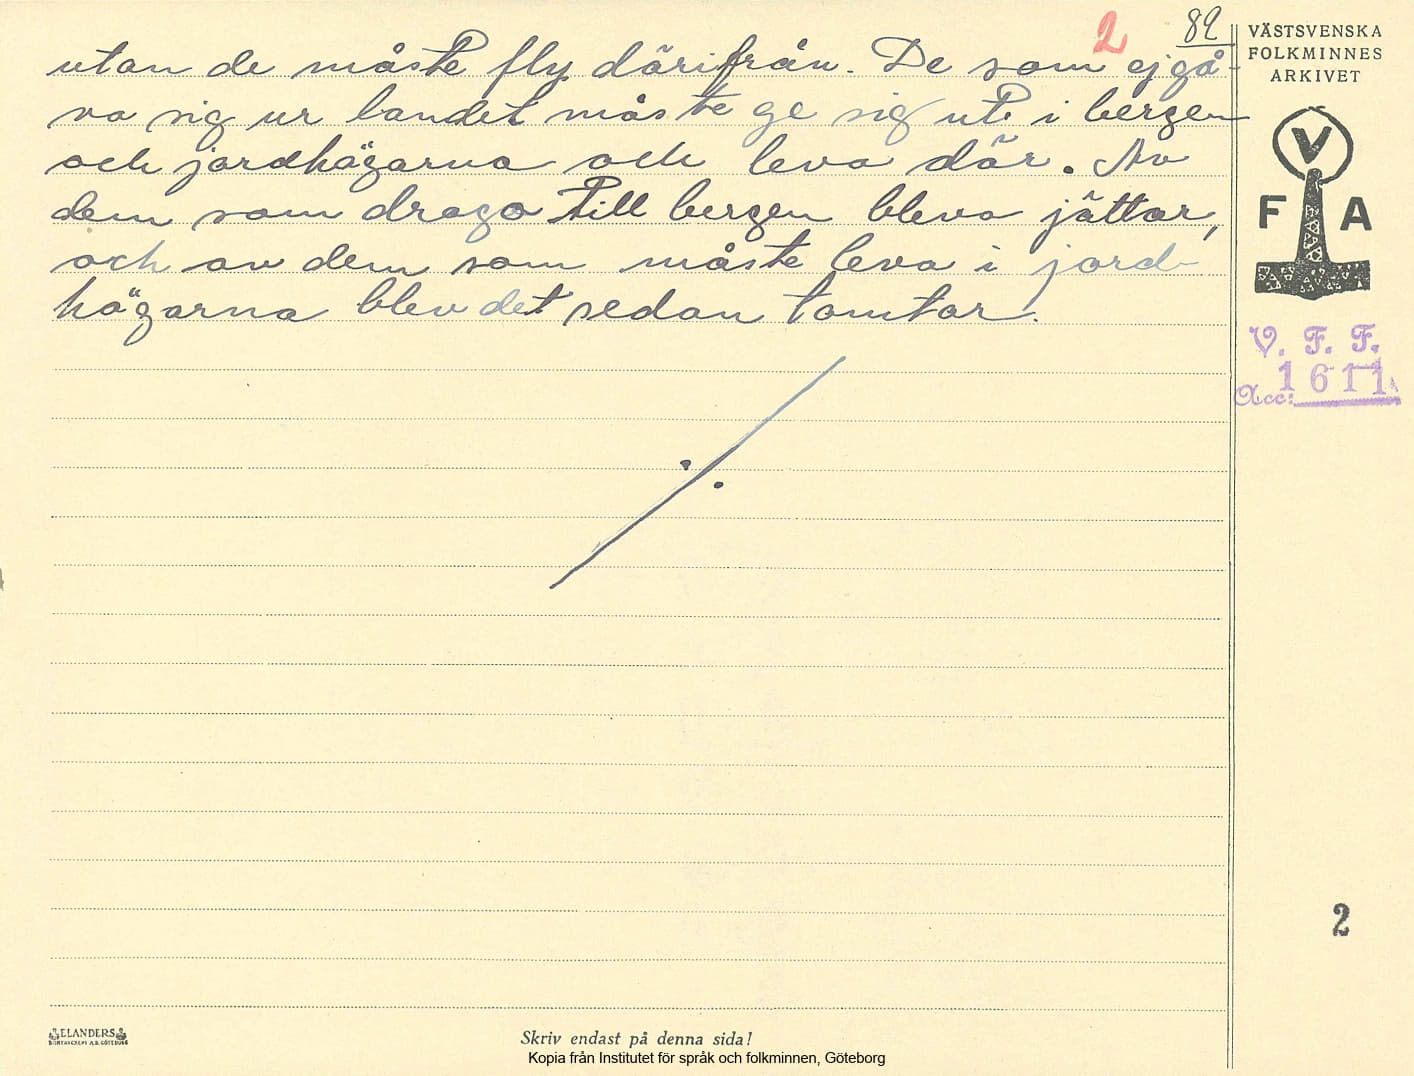 2 82
utan de måste fly därifrån. De som ej gå-
va sig ur landet måste ge sig ut i bergen
och jordhögarna och leva där. Av
dem som drogo till bergen bleva jättar,
och av dem som måste leva i jord-
högarna blev det sedan tomtar.
VÄSTSVENSKA
FOLKMINNES
ARKIVET
V
F A
V. F. F.
Acc: 1611
2
ELANDERS
BOKTRYCKERI A.B. GÖTEBORG
Skriv endast på denna sida!
Kopia från Institutet för språk och folkminnen, Göteborg